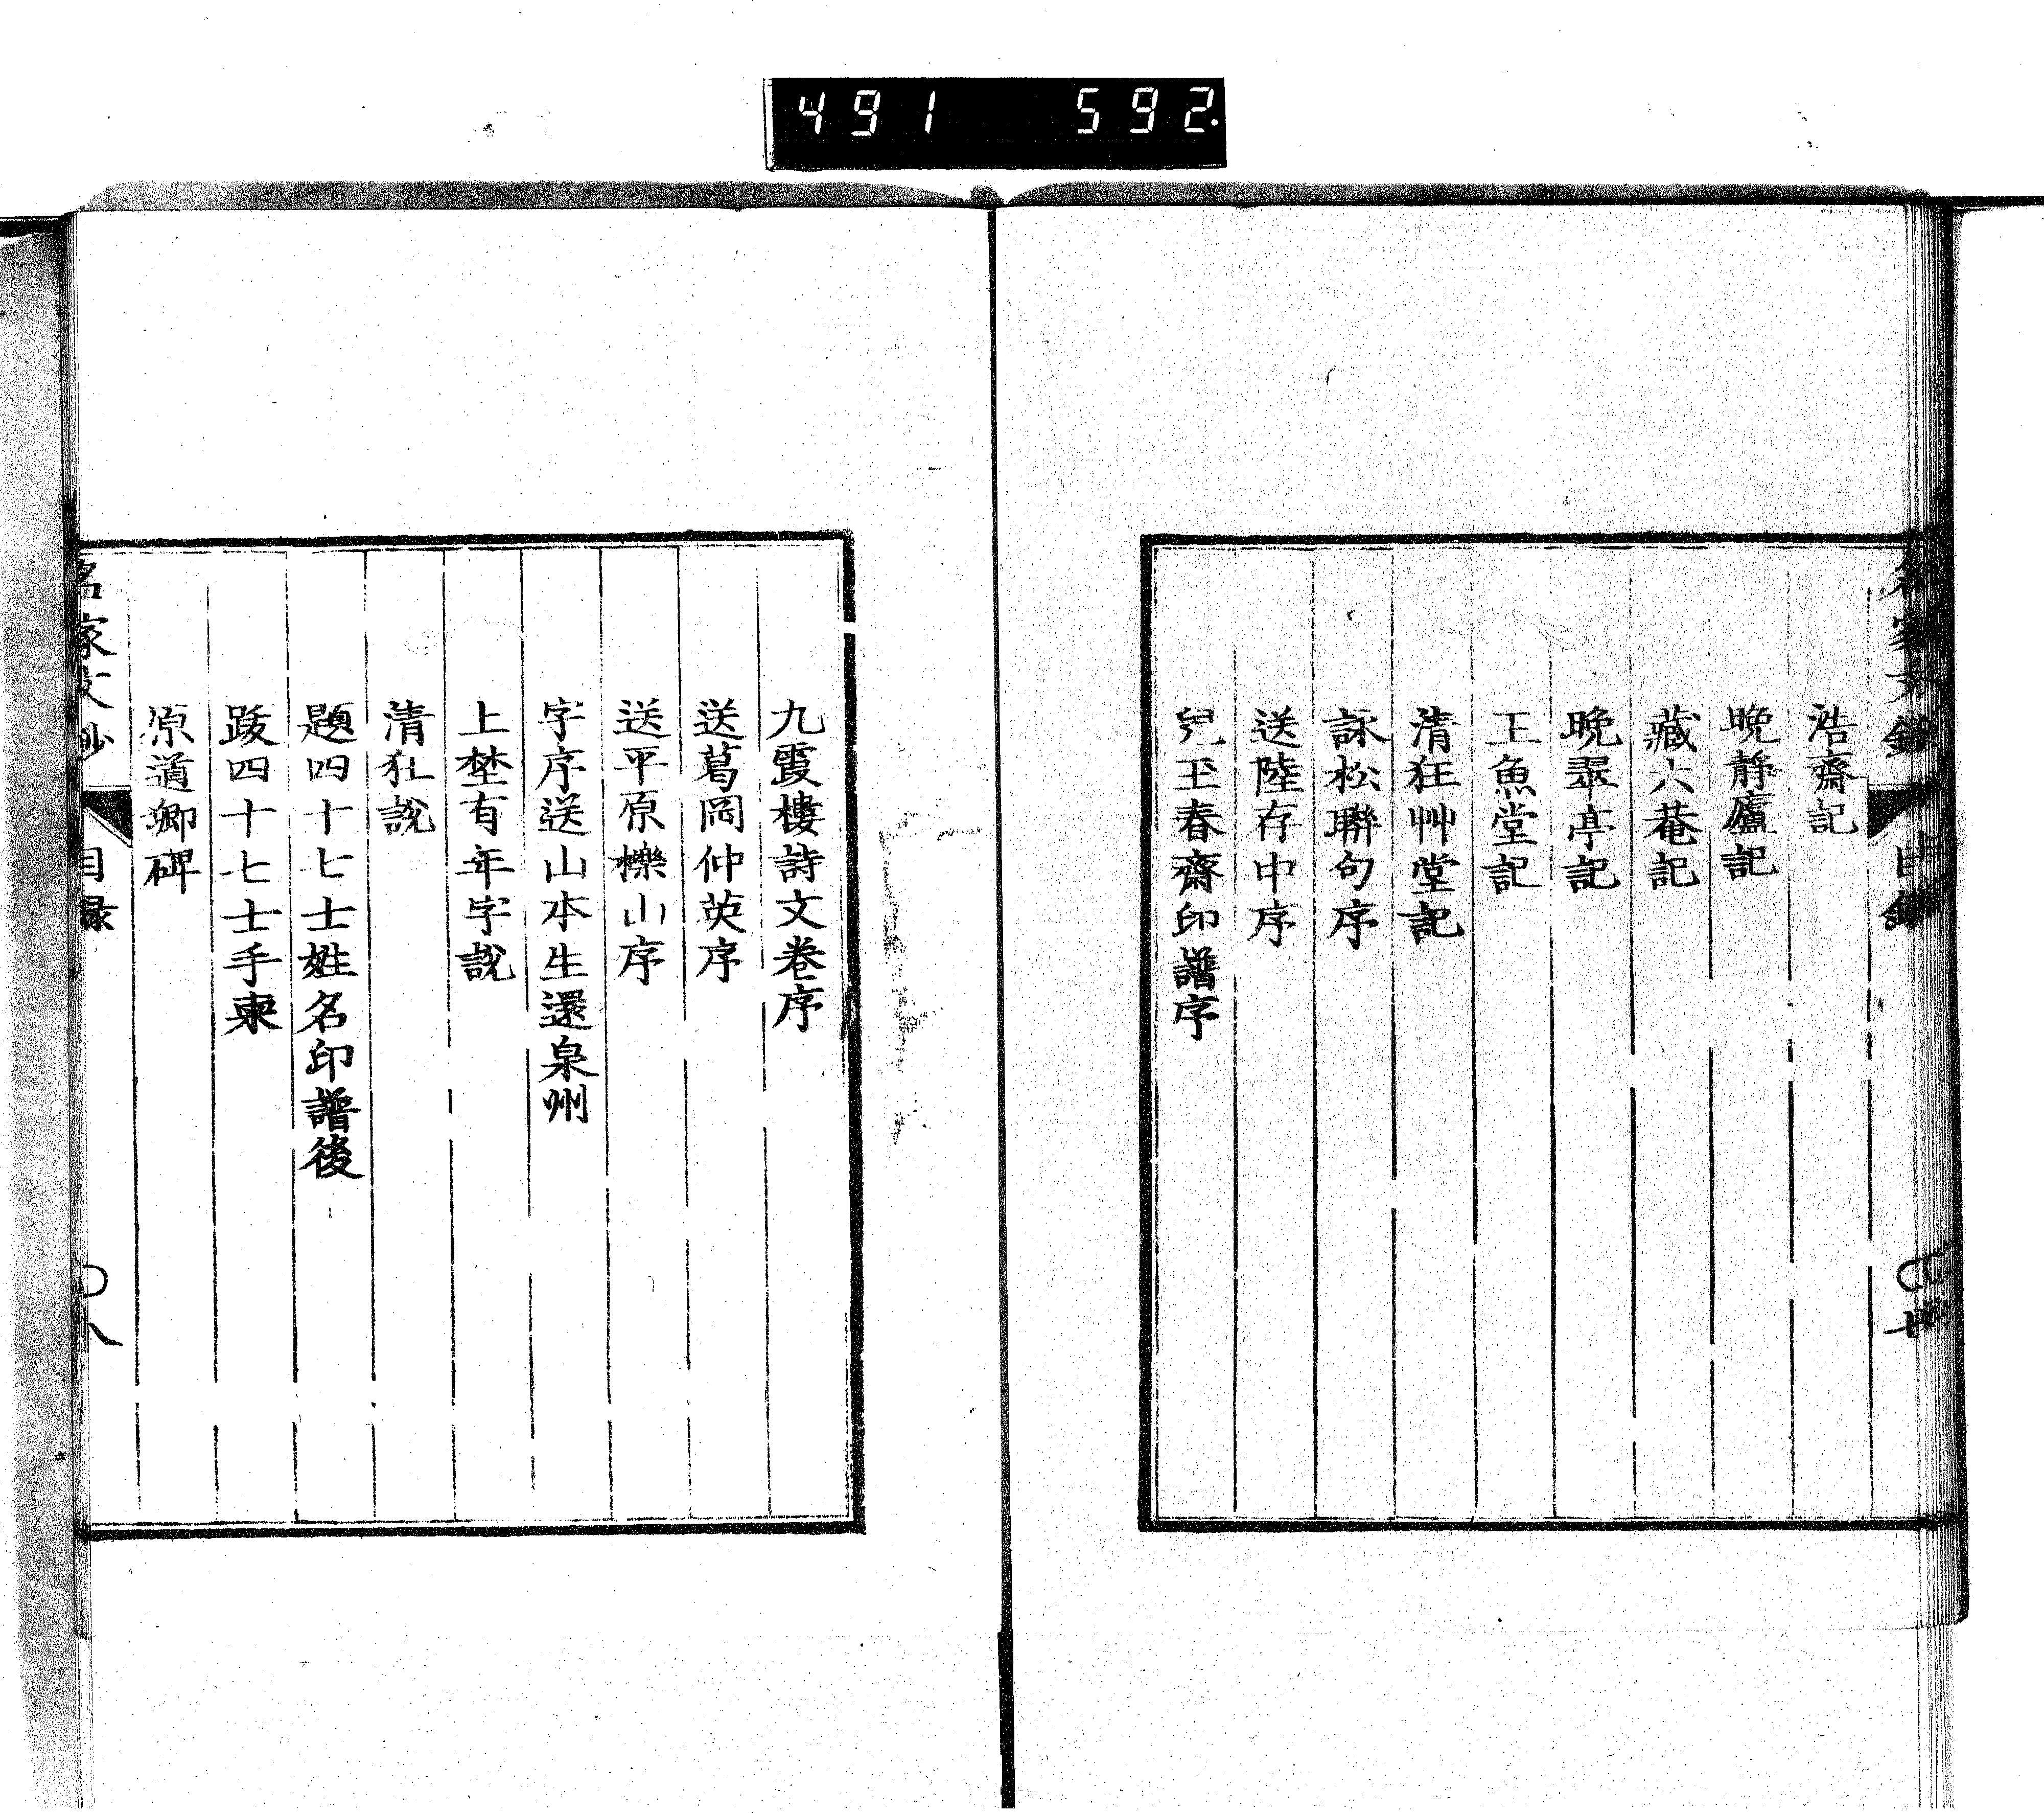 491 592.
浩齋記
晩靜廬記
藏六菴記
晩翠亭記
玉魚堂記
清狂艸堂記
詠松聯句序
送陸存中序
兒玉春齋印譜序
九霞樓詩文卷序
送葛岡仲英序
送平原櫟山序
字序送山本生還泉州
上埜有年字說
清狂說
題四十七士姓名印譜後
跋四十七士手柬
原適卿碑
名家文鈔
目錄
八